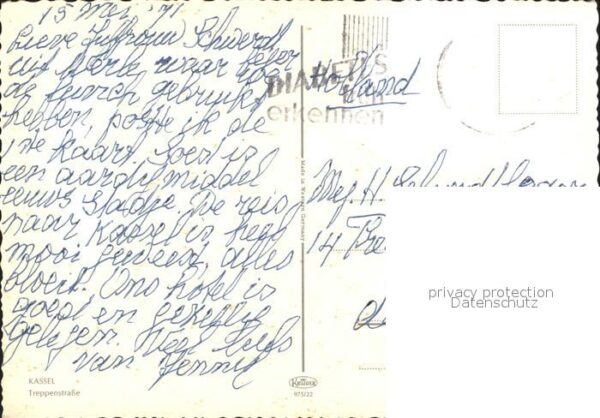 15 Mei '71
Lieve Juffrouw Schwerdt
uit waar we
de lunch gebruikt
hebben, post ik de
1ste kaart. Soest is
een aardig middel
eeuws Stadje. De reis
naar Kassel is heel
mooi geweest, alles
bloeit. Ons hotel is
goed en gezellig
gelegen. Veel liefs
van Jenny
KASSEL
Treppenstraße
Made in Western Germany
Krüger
975/22
DIABETES
erkennen
Holland
Mej. H.
14
privacy protection
Datenschutz